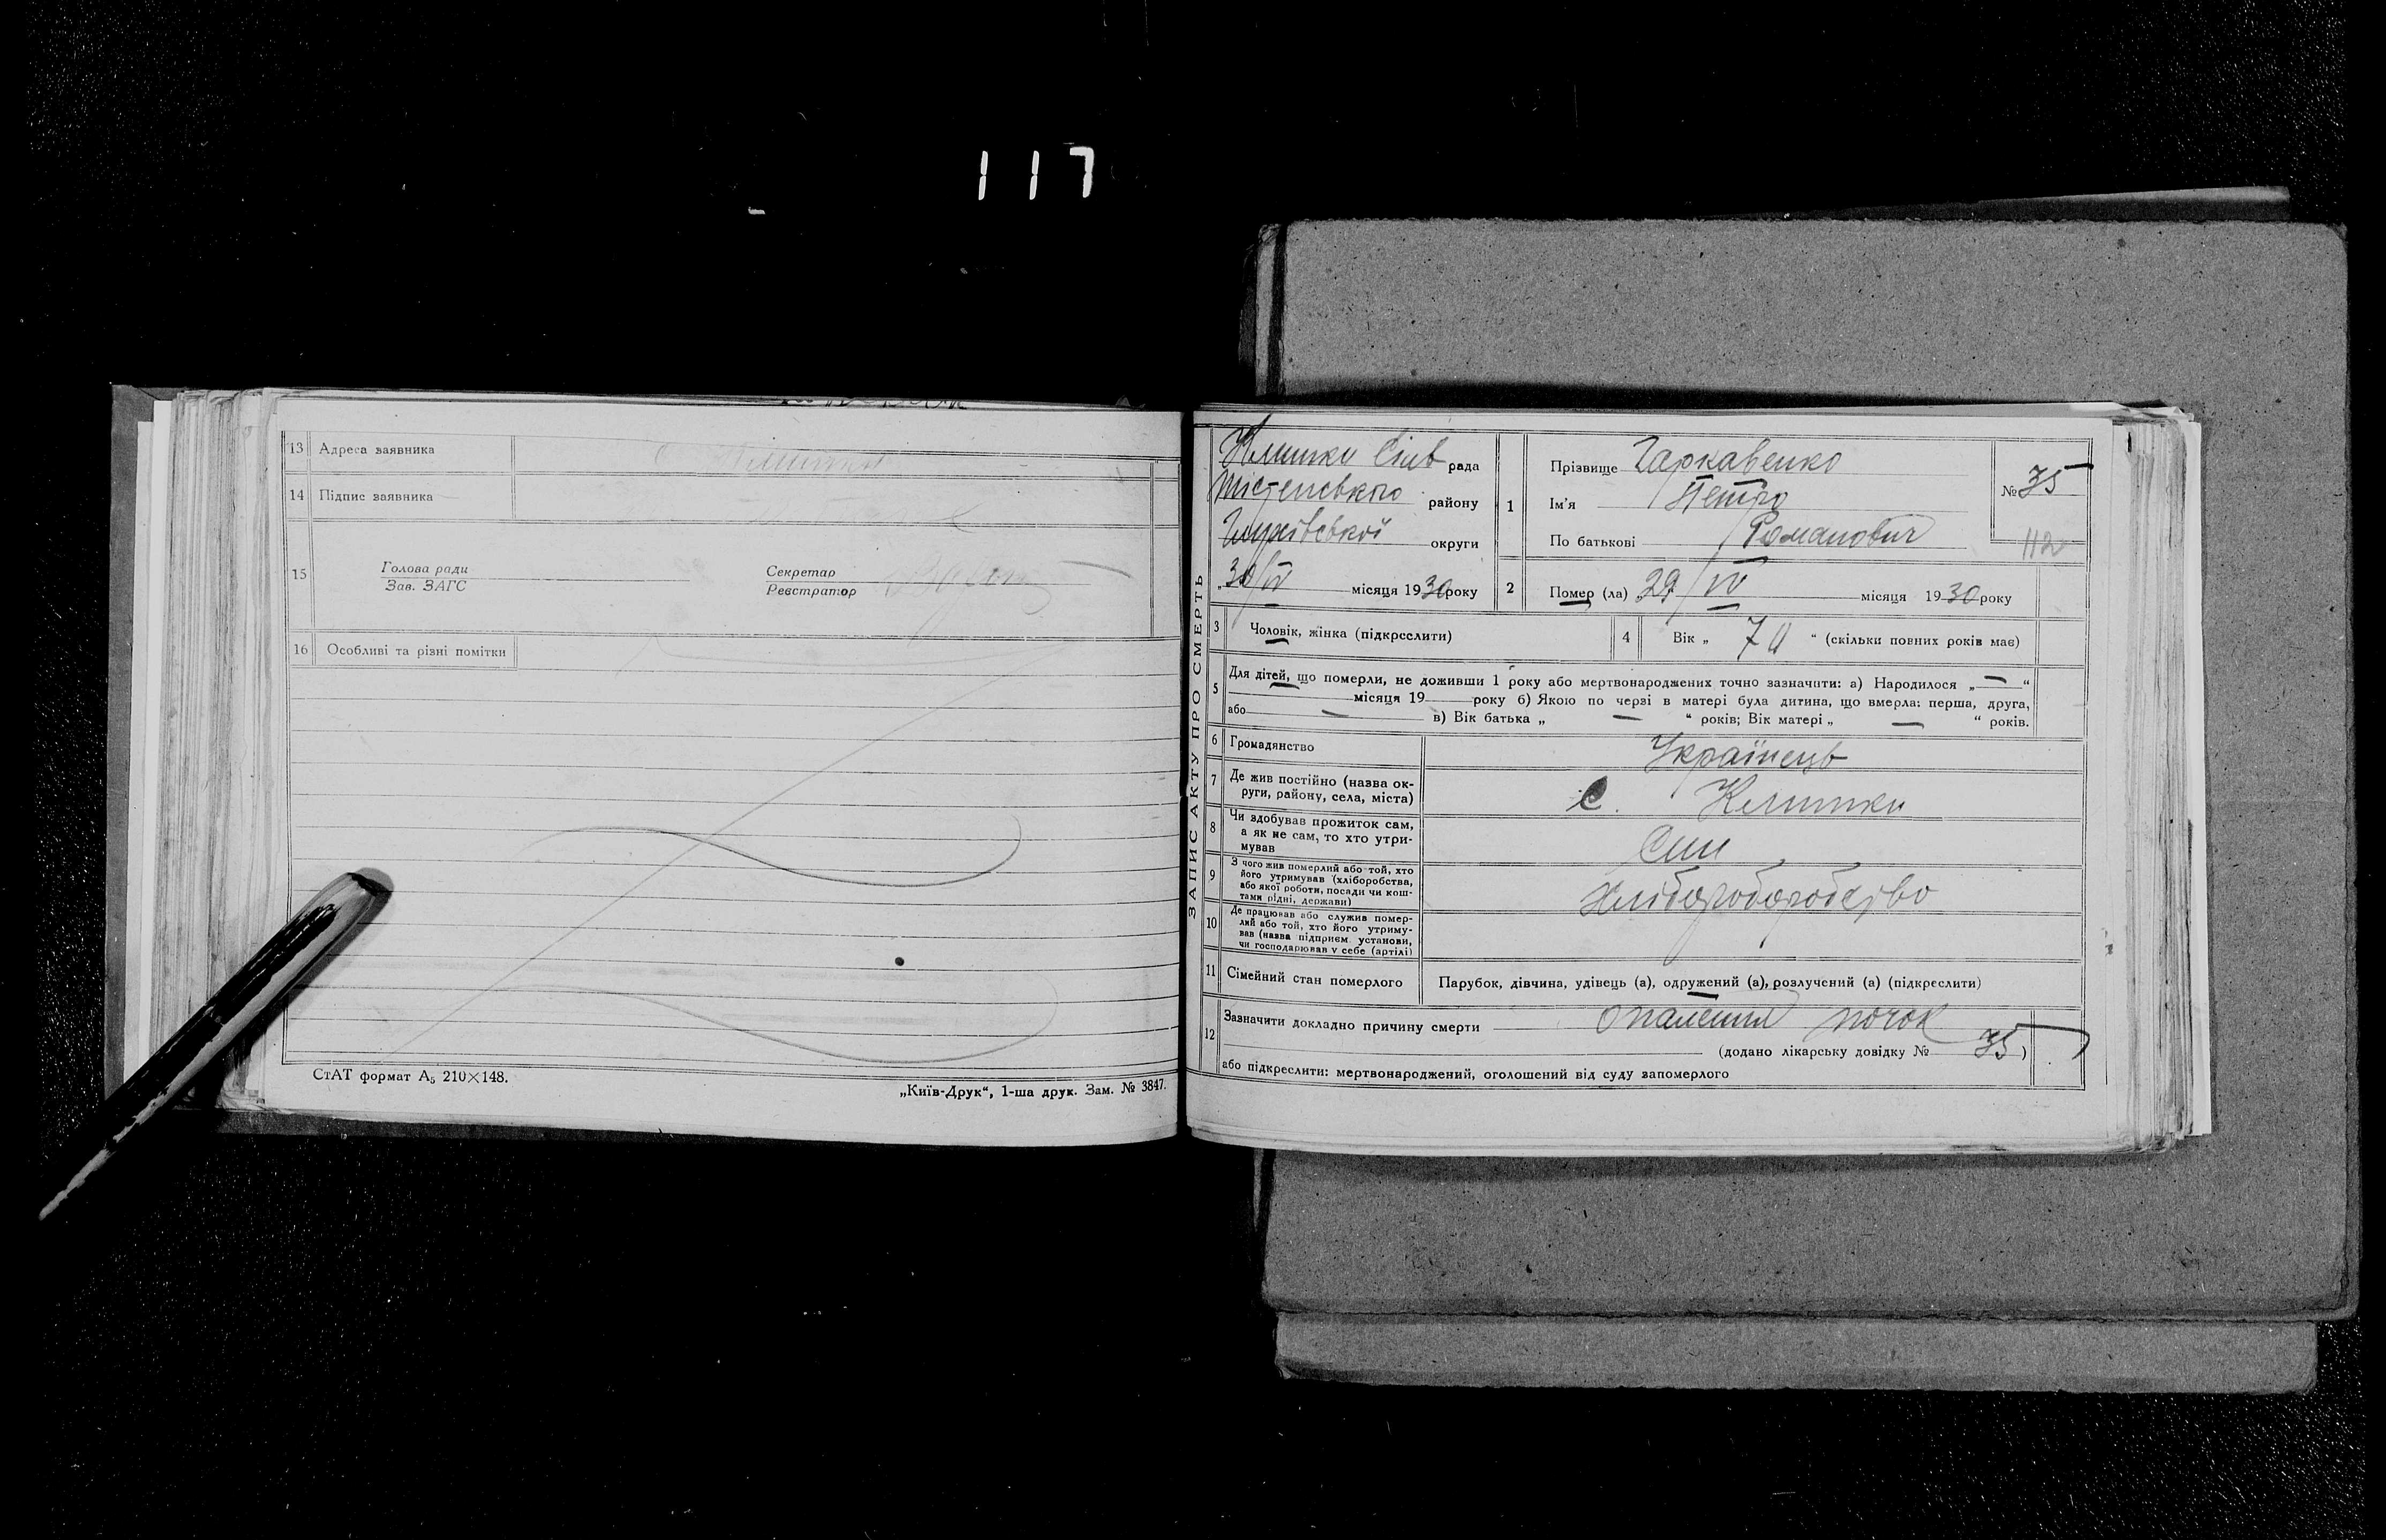 117
13 Адреса заявника
14 Підпис заявника
15 Голова ради
Зав. ЗАГС
Секретар
Реєстратор
16 Особливі та різні помітки
СтАТ формат А₅ 210×148.
„Київ-Друк“, 1-ша друк. Зам. № 3847.
ЗАПИС АКТУ ПРО СМЕРТЬ
Клишки Сіль рада
району
округи
„30/IV місяця 1930 року
1 Прізвище Гаркавенко
Ім'я Петро
По батькові Романович
№ 35
112
2 Помер (ла) „29/IV місяця 1930 року
3 Чоловік, жінка (підкреслити)
4 Вік „ 70 “ (скільки повних років має)
5 Для дітей, що померли, не доживши 1 року або мертвонароджених точно зазначити: а) Народилося „—“
місяця 19 року б) Якою по черзі в матері була дитина, що вмерла: перша, друга,
або — в) Вік батька „ — “ років; Вік матері „ — “ років.
6 Громадянство Українець
7 Де жив постійно (назва ок-
руги, району, села, міста) с. Клишки
8 Чи здобував прожиток сам,
а як не сам, то хто утри-
мував Син
9 З чого жив померлий або той, хто
його утримував (хліборобства,
або якої роботи, посади чи кош-
тами рідні, держави)
10 Де працював або служив помер-
лий або той, хто його утриму-
вав (назва підприєм. установи,
чи господарював у себе (артілі)
11 Сімейний стан померлого Парубок, дівчина, удівець (а), одружений (а), розлучений (а) (підкреслити)
12 Зазначити докладно причину смерти опалення почок
(додано лікарську довідку № 35)
або підкреслити: мертвонароджений, оголошений від суду запомерлого